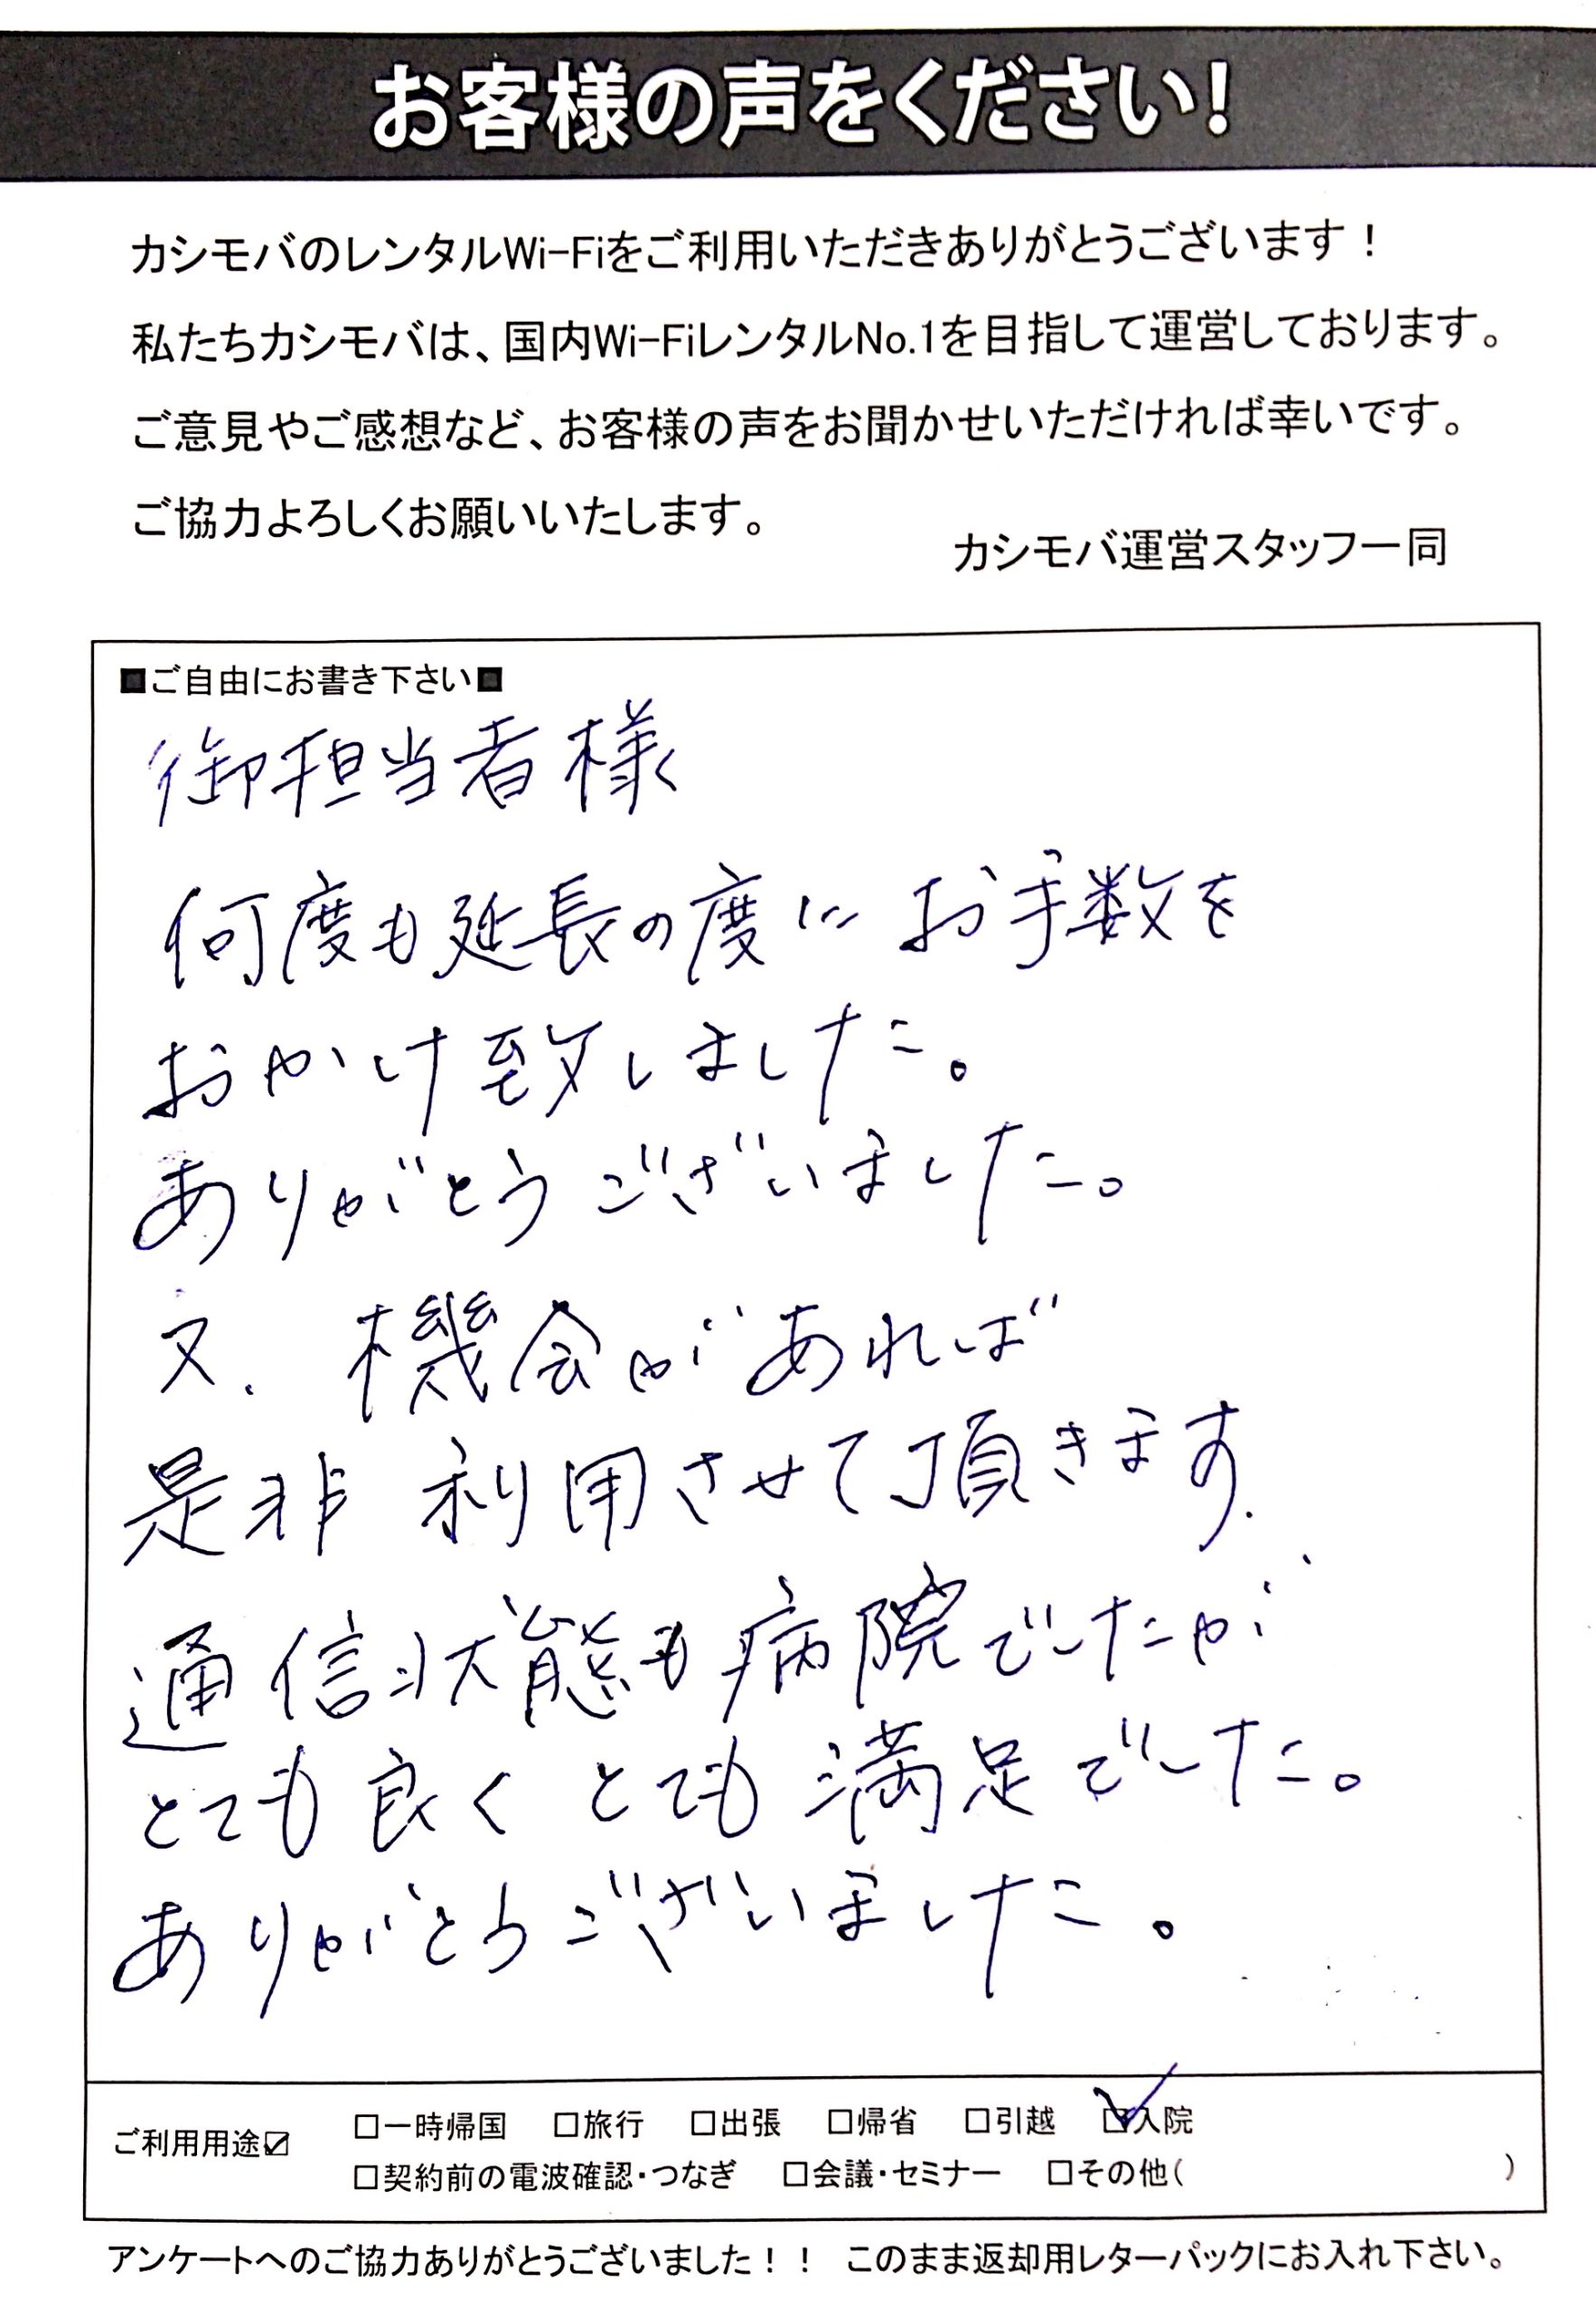 お客様の声をください!
カシモバのレンタルWi-Fiをご利用いただきありがとうございます！
私たちカシモバは、国内Wi-FiレンタルNo.1を目指して運営しております。
ご意見やご感想など、お客様の声をお聞かせいただければ幸いです。
ご協力よろしくお願いいたします。
カシモバ運営スタッフ一同
■ご自由にお書き下さい■
御担当者様
何度も延長の度に お手数を
おかけ致しました。
ありがとうございました。
又、機会があれば
是非 利用させて頂きます.
通信状態も病院でしたが
とても良く とても 満足でした。
ありがとうございました。
ご利用用途☑ □一時帰国 □旅行 □出張 □帰省 □引越 ☑入院
□契約前の電波確認・つなぎ □会議・セミナー □その他( )
アンケートへのご協力ありがとうございました！！ このまま返却用レターパックにお入れ下さい。